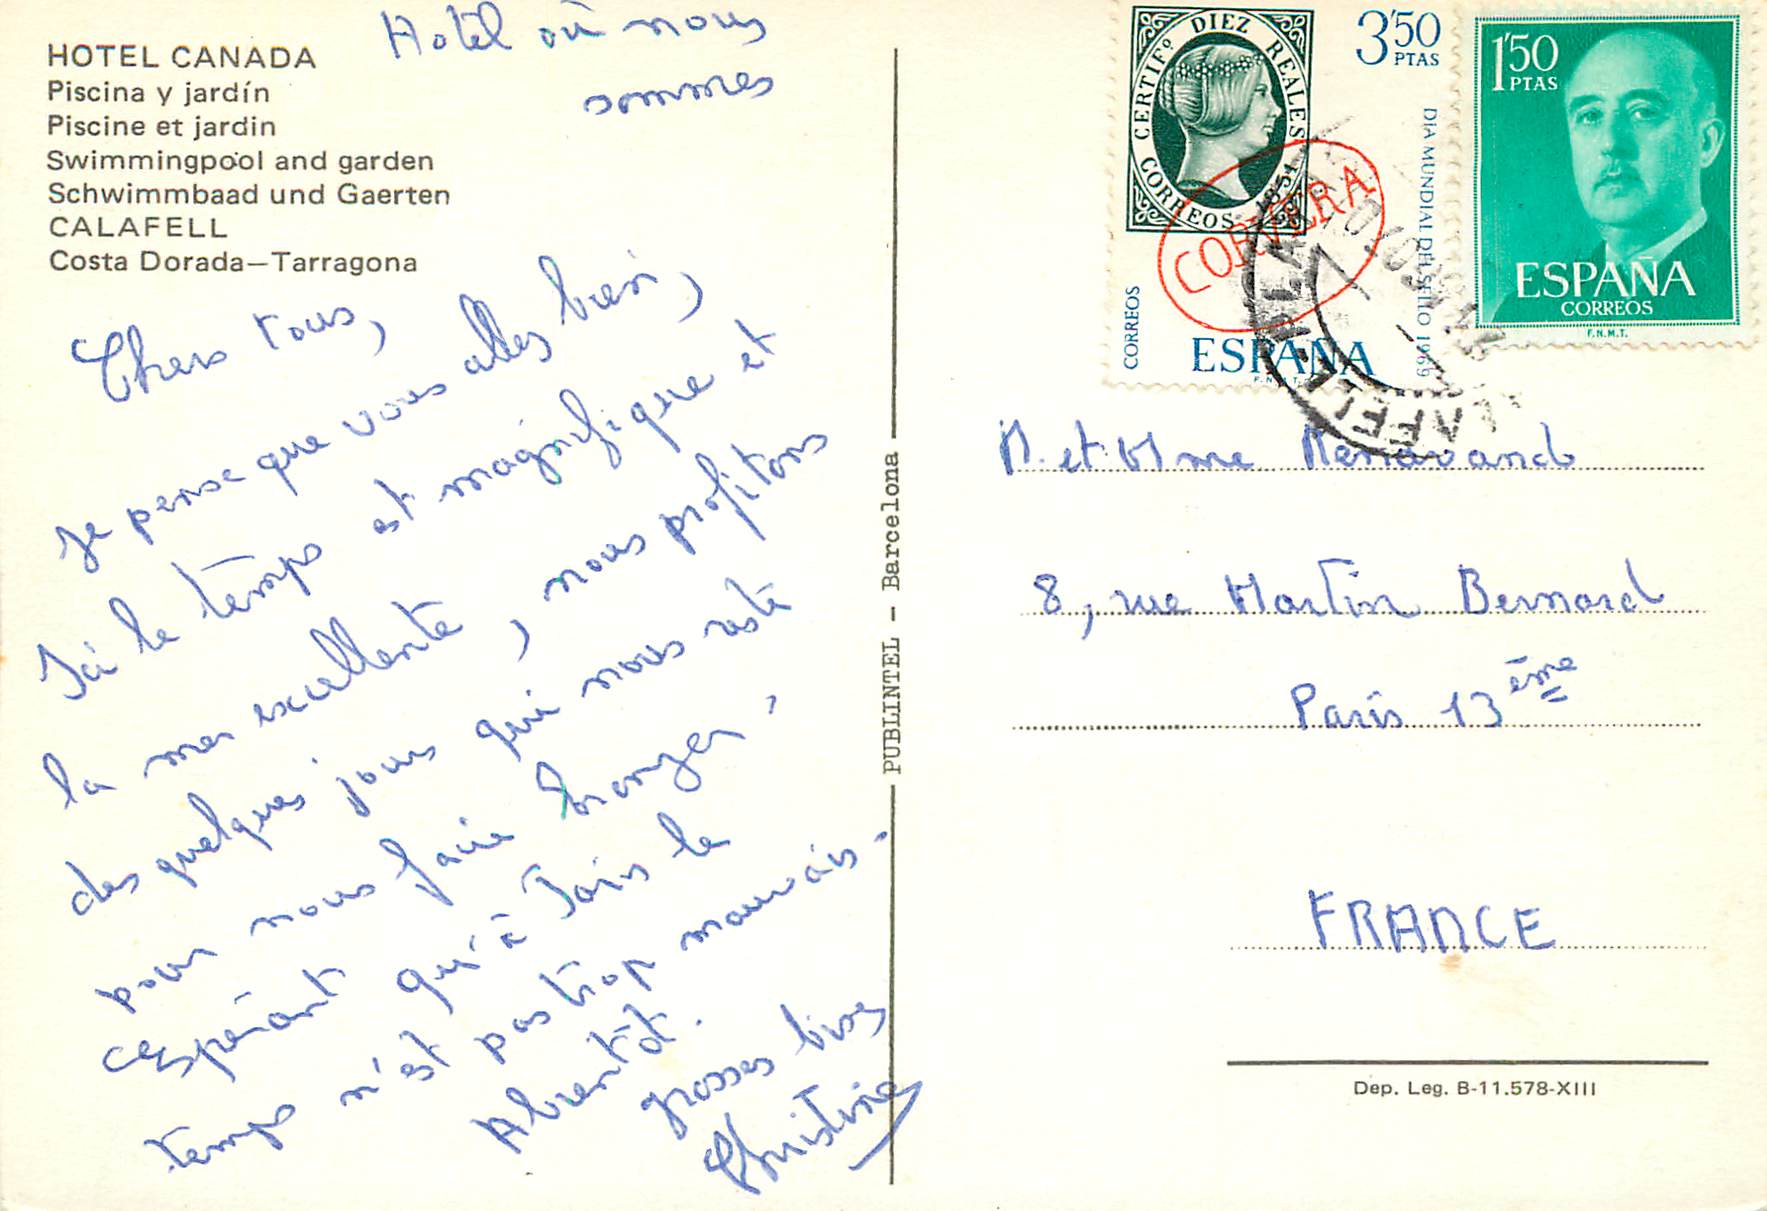 HOTEL CANADA
Piscina y jardín
Piscine et jardin
Swimmingpool and garden
Schwimmbaad und Gaerten
CALAFELL
Costa Dorada—Tarragona
Hotel où nous
sommes
Chers tous,
je pense que vous allez bien,
Ici le temps est magnifique et
la mer excellente, nous profitons
des quelques jours qui nous reste
pour nous faire bronzer,
espérant qu'à Paris le
temps n'est pas trop mauvais.
A bientôt.
grosses bises
Christine
PUBLINTEL - Barcelona
CERTIFº DIEZ REALES
CORREOS 1851
3'50
PTAS
DIA MUNDIAL DEL SELLO 1969
CORREOS
ESPAÑA
F.N.M.T.
CORVERA
1'50
PTAS
ESPAÑA
CORREOS
F.N.M.T.
M. et Mme
8, rue Martin Bernard
Paris 13ème
FRANCE
Dep. Leg. B-11.578-XIII